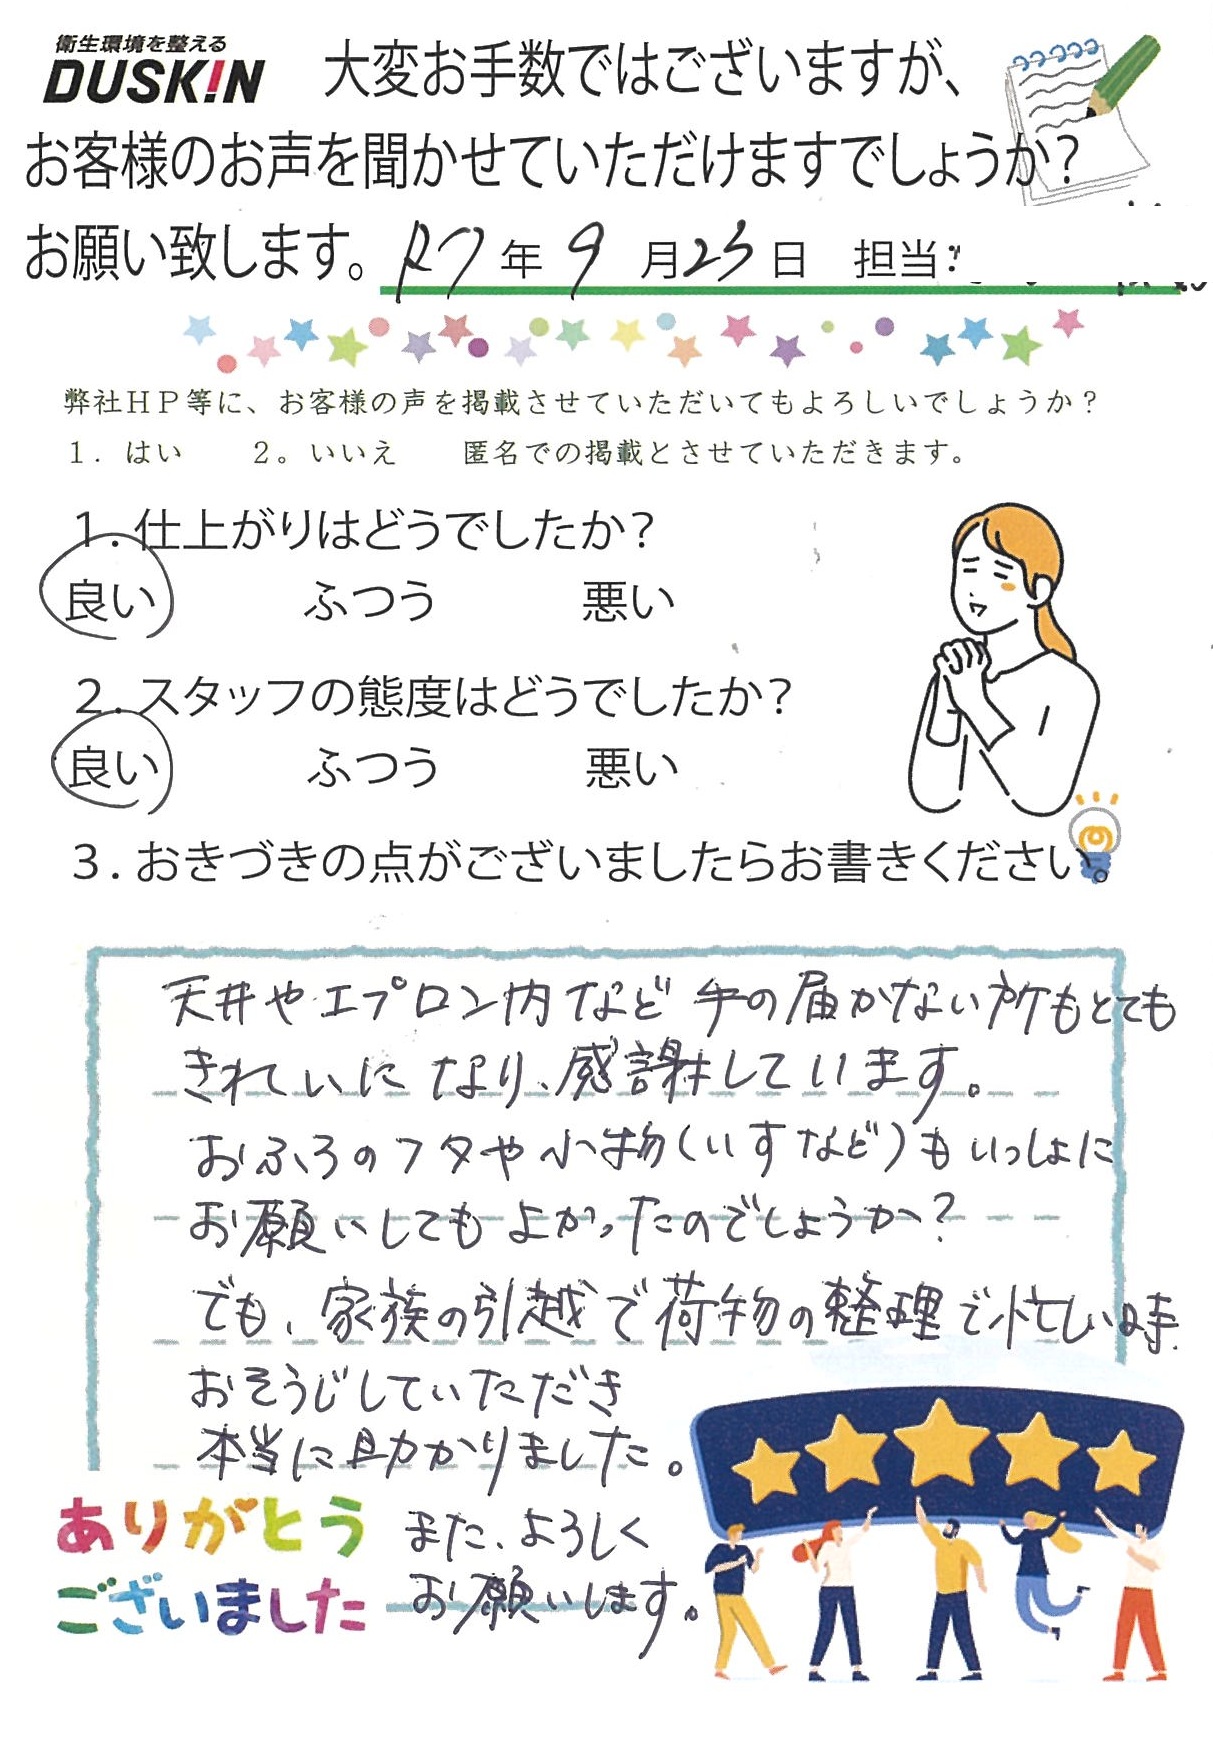 衛生環境を整える
DUSKIN 大変お手数ではございますが、
お客様のお声を聞かせていただけますでしょうか？
お願い致します。 R7年 9月23日 担当：
弊社ＨＰ等に、お客様の声を掲載させていただいてもよろしいでしょうか？
１．はい ２。いいえ 匿名での掲載とさせていただきます。
１．仕上がりはどうでしたか？
良い ふつう 悪い
２．スタッフの態度はどうでしたか？
良い ふつう 悪い
３．おきづきの点がございましたらお書きください。
天井やエプロン内など手の届かない所もとても
きれいになり、感謝しています。
おふろのフタや小物（いすなど）もいっしょに
お願いしてもよかったのでしょうか？
でも、家族の引越で荷物の整理で忙しい時
おそうじしていただき
本当に助かりました。
ありがとう
ございました
また、よろしく
お願いします。